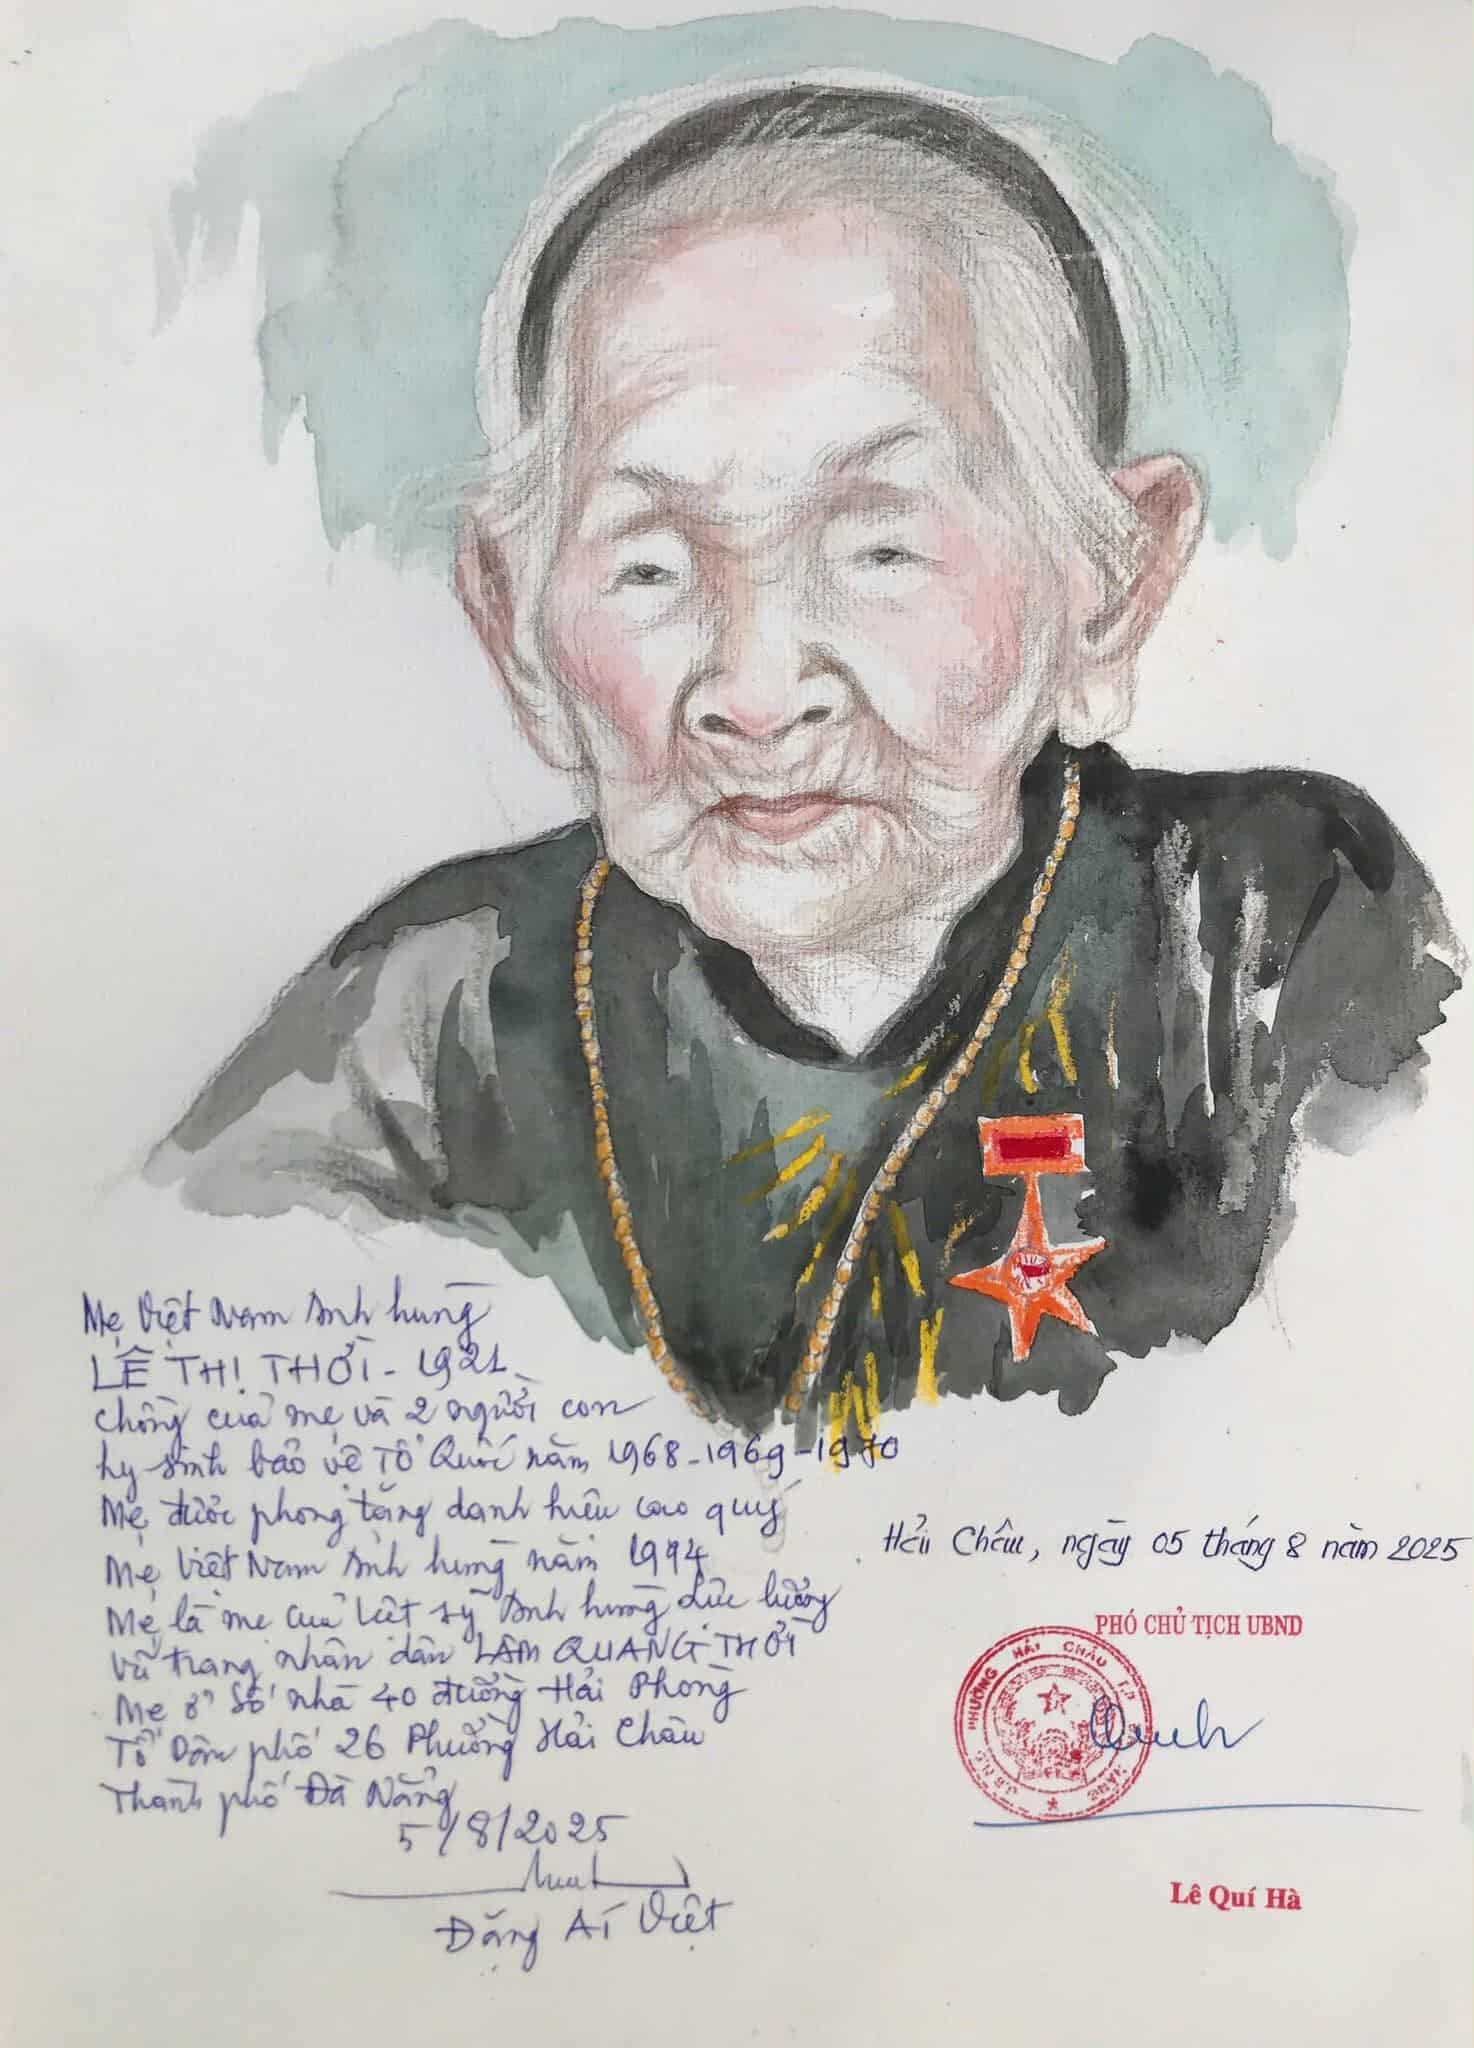 Mẹ Việt Nam Anh hùng
LÊ THỊ THỚI - 1921
Chồng của mẹ và 2 người con
hy sinh bảo vệ Tổ Quốc năm 1968-1969-1970
Mẹ được phong tặng danh hiệu cao quý
Mẹ Việt Nam Anh hùng năm 1994
Mẹ là mẹ của Liệt sỹ Anh hùng Lực lượng
Vũ trang nhân dân LÂM QUANG THỚI
Mẹ ở số nhà 40 đường Hải Phòng
Tổ Dân phố 26 Phường Hải Châu
Thành phố Đà Nẵng
5/8/2025
Đặng Ái Việt
Hải Châu, ngày 05 tháng 8 năm 2025
PHÓ CHỦ TỊCH UBND
PHƯỜNG HẢI CHÂU
Lê Quí Hà